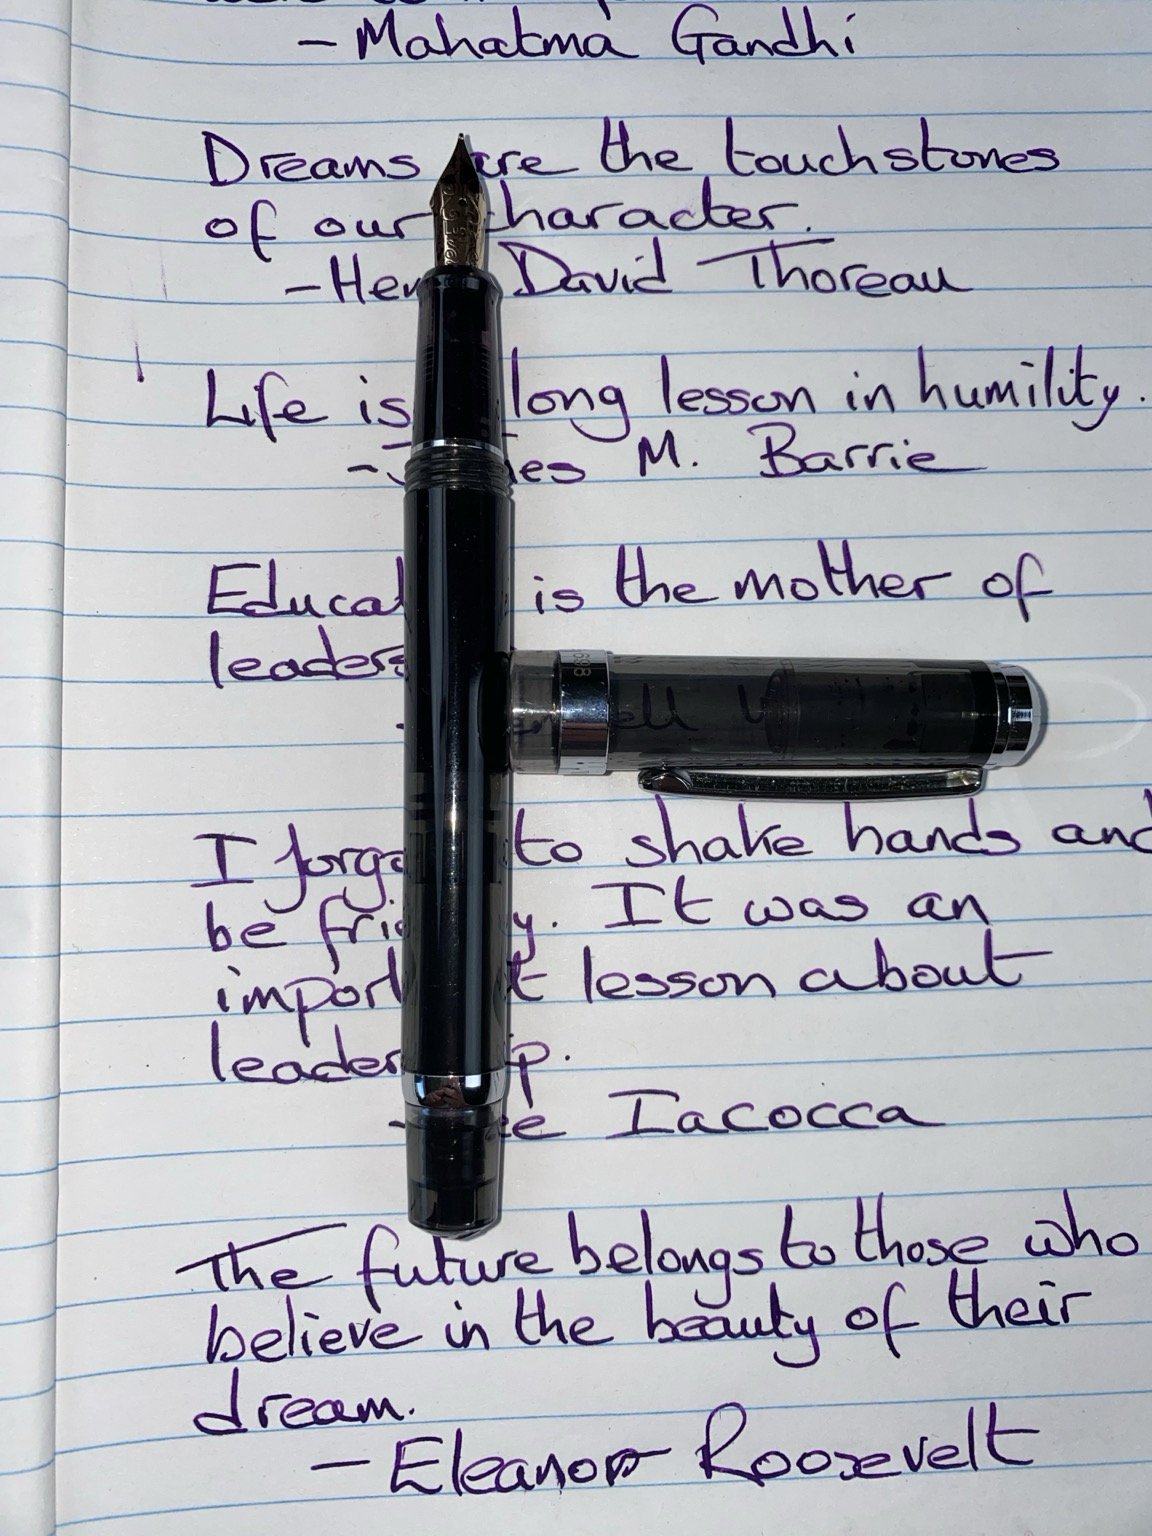 - Mahatma Gandhi
Dreams are the touchstones
of our character.
- Hen David Thoreau
Life is long lesson in humility.
- es M. Barrie
Educat is the mother of
leaders
698
I forgo to shake hands and
be frie y. It was an
import t lesson about
leader ip.
- ee Iacocca
The future belongs to those who
believe in the beauty of their
dream.
- Eleanor Roosevelt